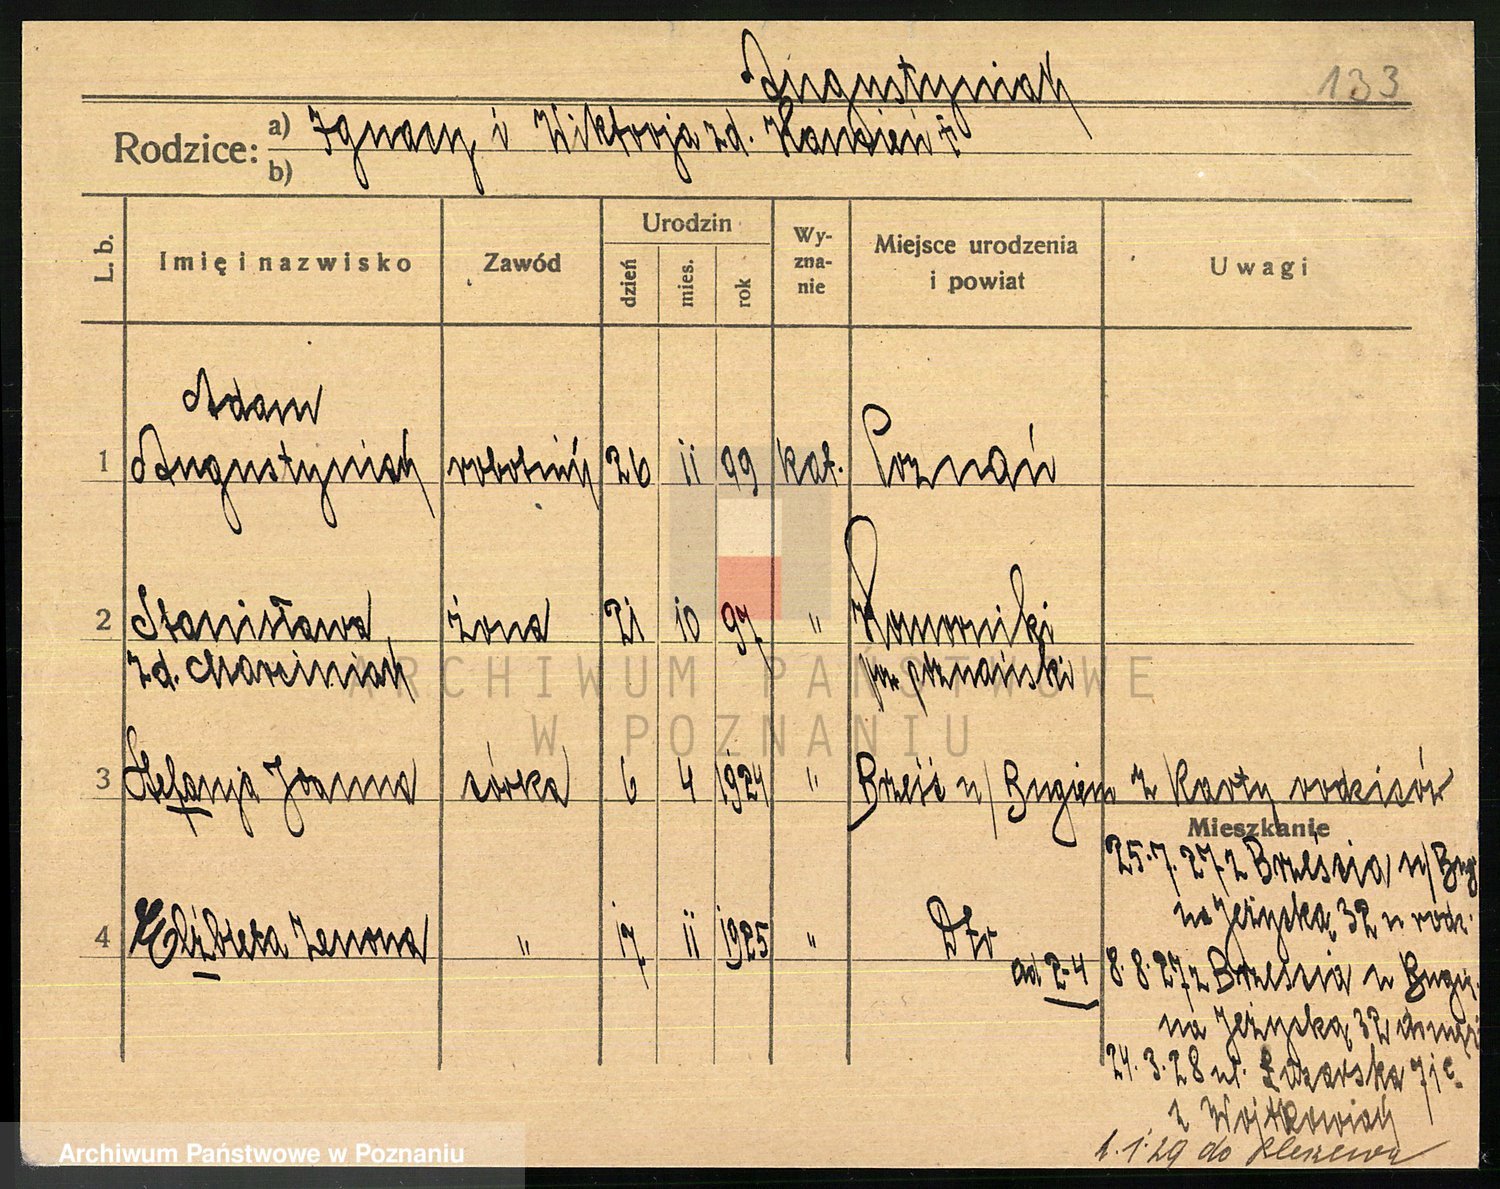 Augustyniak
133
Rodzice: a) Ignacy i Wiktorja zd. Kamień
b)
L. b.
Imię i nazwisko
Zawód
Urodzin
dzień
mies.
rok
Wy-
zna-
nie
Miejsce urodzenia
i powiat
Uwagi
Adam
1 Augustyniak robotnik 26 11 99 kat. Poznań
2 Stanisława żona 21 10 97 " Komorniki
zd. Marciniak pow. poznański
3 Stefanja Joanna córka 6 4 1924 " Brześć n/ Bugiem z karty rodziców
Mieszkanie
25.7.27 z Brześcia n/ Bug.
na Jeżycką 32 u rodz.
4 Elżbieta Zenona " 17 11 1925 " Dto
ad 2-4 8.8.27 z Brześcia n Bugi.
na Jeżycką 32
24.3.28 ul. Łazarska 7
z Wojtkowiak
1.29 do Pleszewa
ARCHIWUM PAŃSTWOWE
W POZNANIU
Archiwum Państwowe w Poznaniu